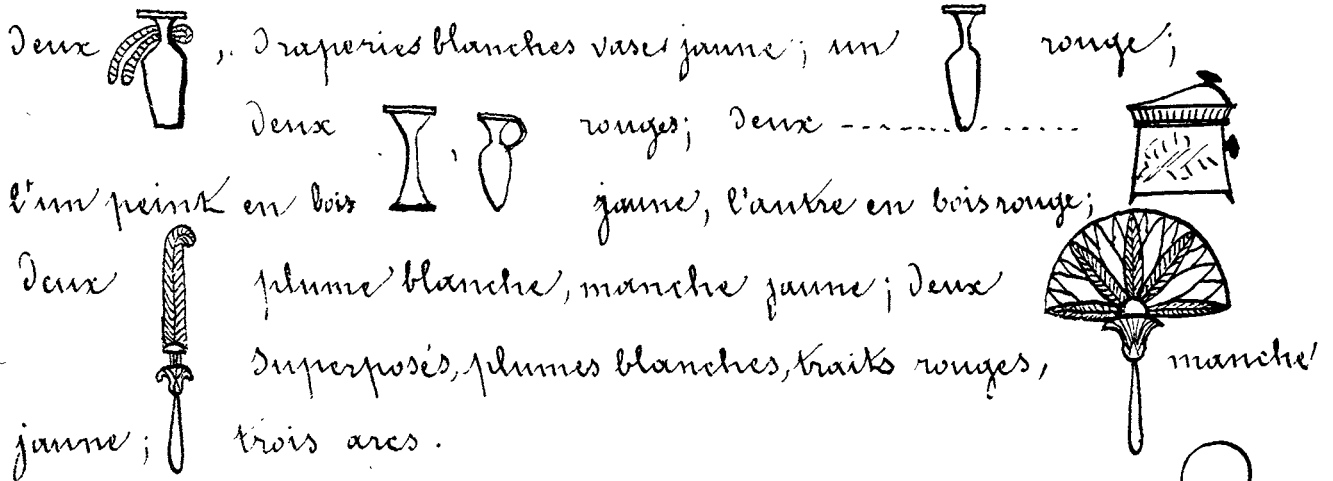 Deux , Draperies blanches vases jaune; un rouge;
Deux , rouges; Deux ...............
l'un peint en bois jaune, l'autre en bois rouge;
Deux plume blanche, manche jaune; Deux
Superposés, plumes blanches, traits rouges, manche
jaune; trois arcs.